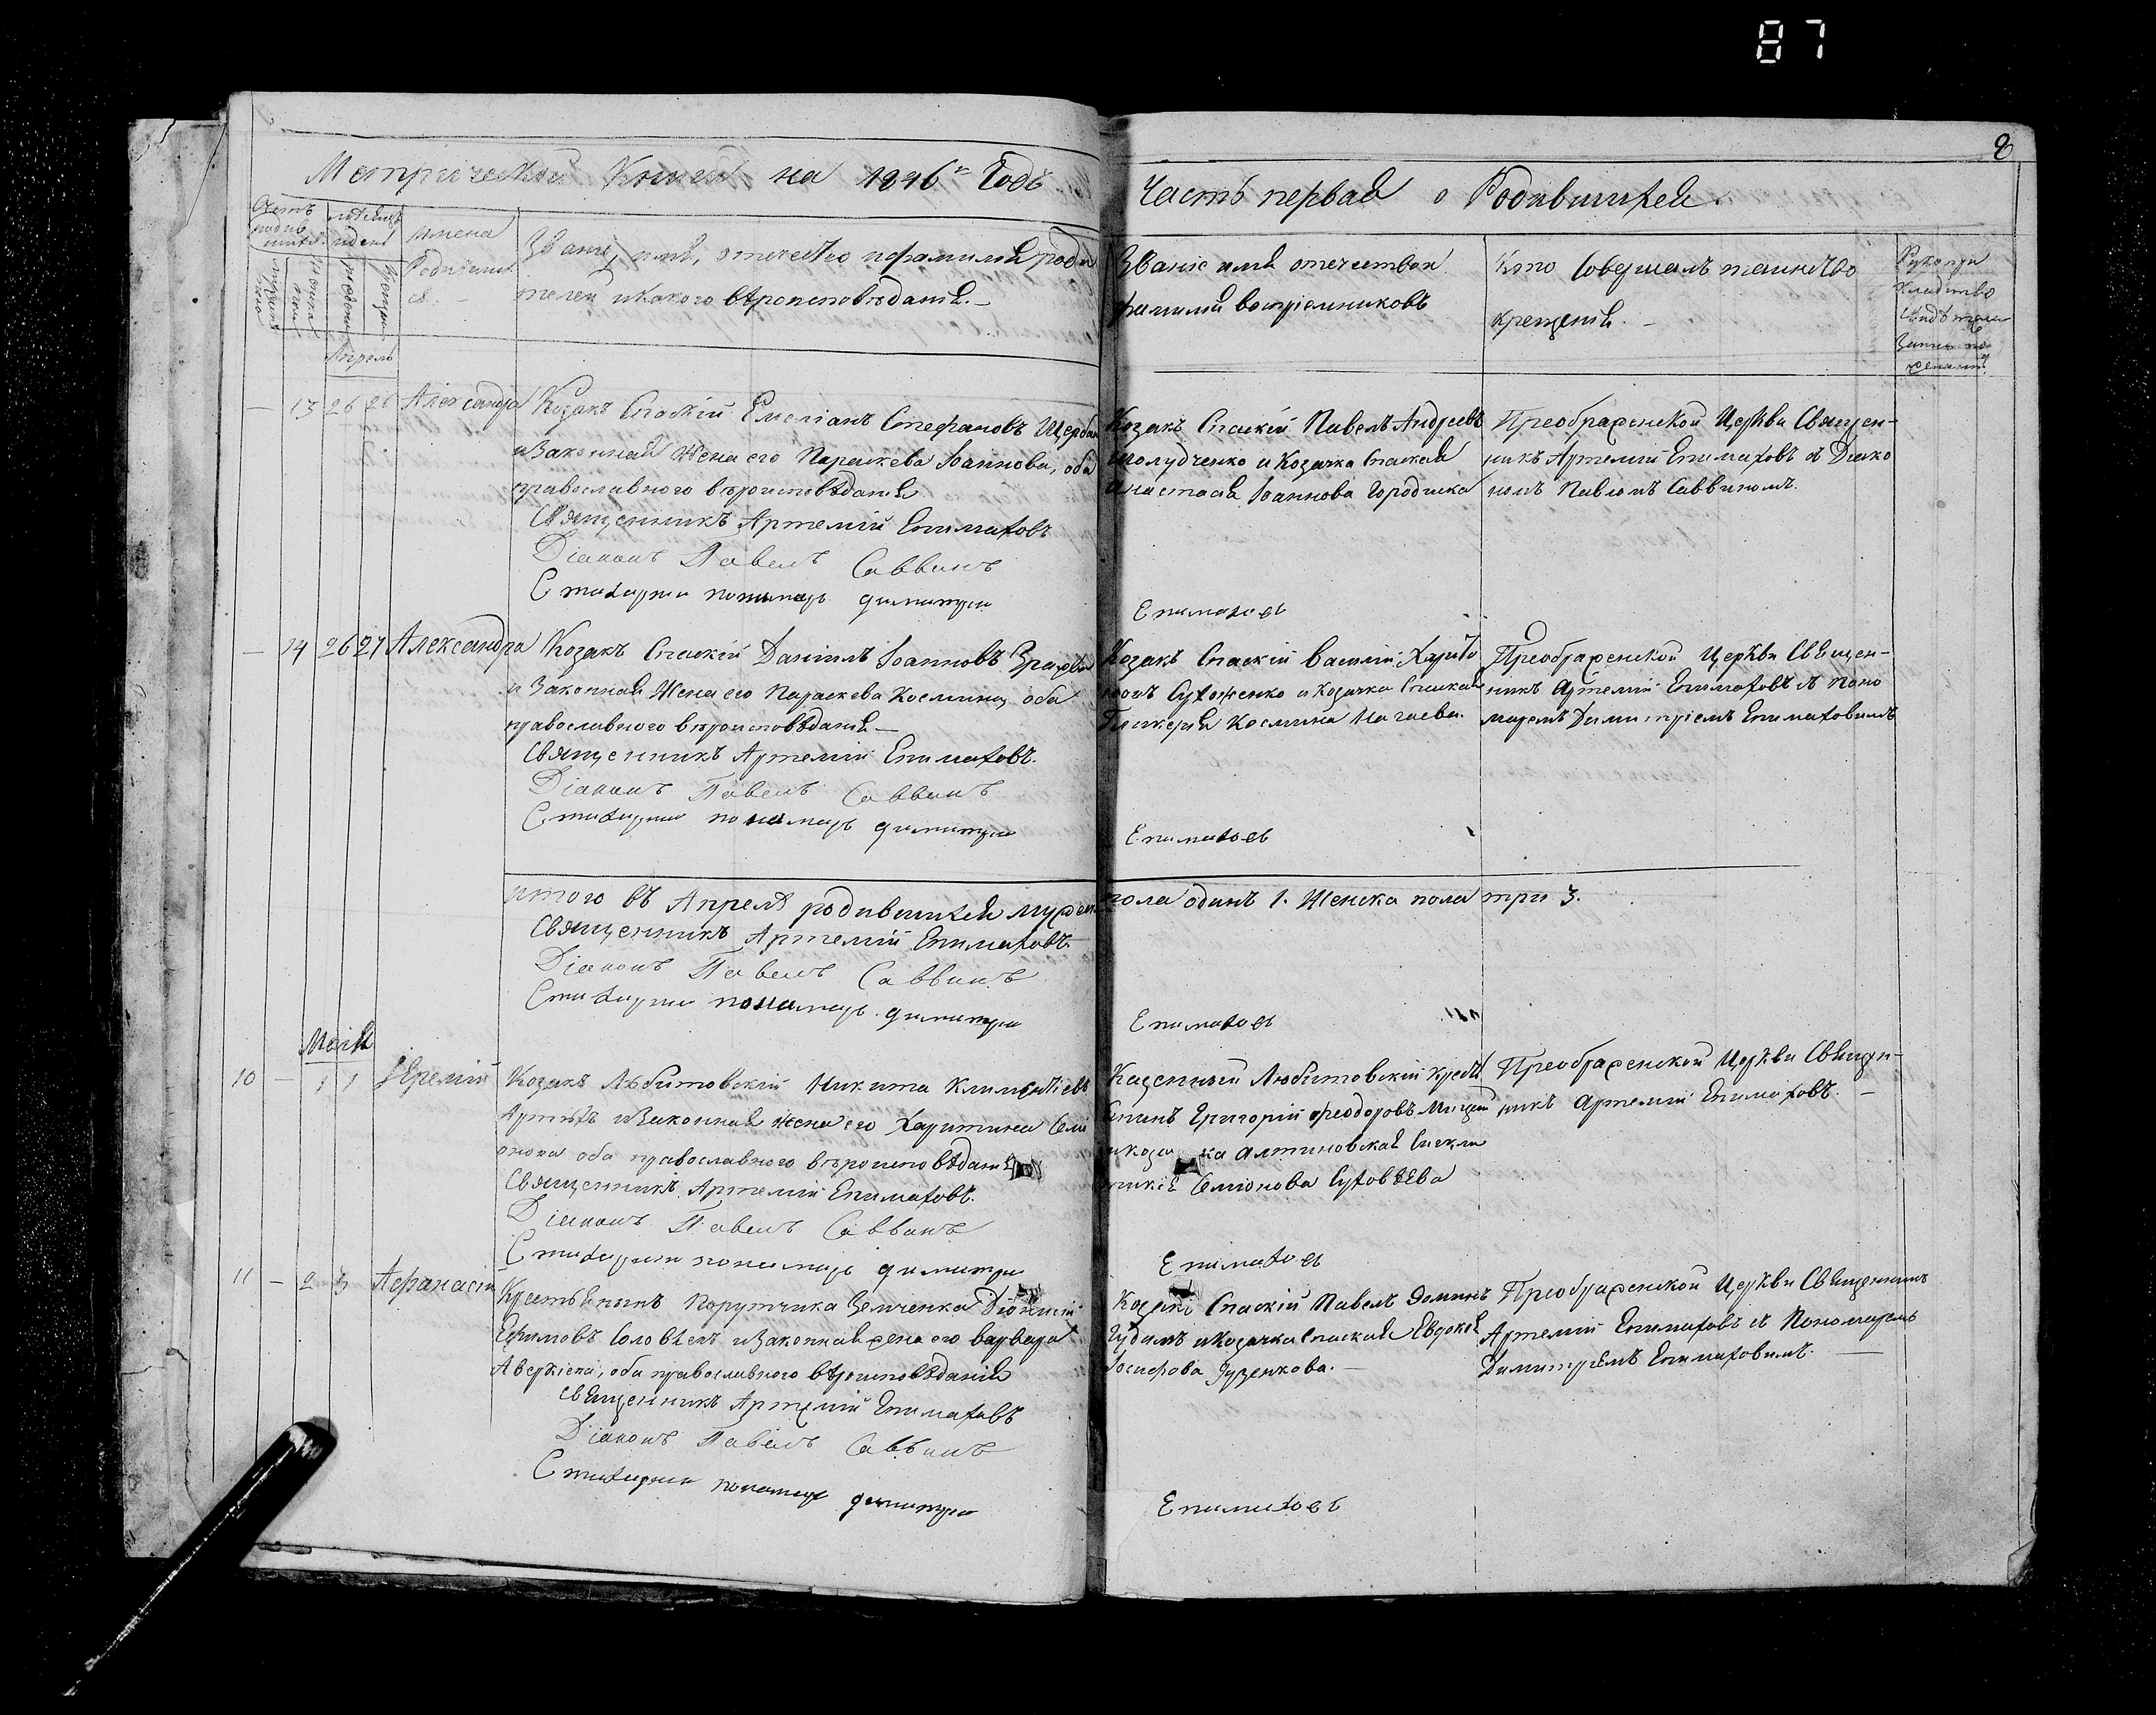 87
8
Метрической Книги на 1846й Годъ
Часть первая о Родившихся
имена
Родившихся
Званіе, имя, отечество и фамилія роди
телей и какого вѣроисповѣданія.
Званіе имя отечество и
фамилія воспріемниковъ
Кто Совершалъ таинство
крещенія.
Рукопри
кладство
Свидѣтелей
Записи по
желанію
Апрель
— 13 26 26 Александра Козакъ Спаскій Емеліанъ Стефановъ Щербак
и Законная Жена его Параскева Іоаннова, оба
православного вѣроисповѣданія
Священникъ Артемій Епимаховъ
Діаконъ Павелъ Саввинъ
Стихарни пономарь димитри
Козакъ Спаскій Павелъ Андреевъ
Шолудченко и Козачка Спаская
Анастасія Іоаннова Городиска
Епимаховъ
Преображенской Церкви Священ-
никъ Артемій Епимаховъ съ Діако
номъ Павломъ Саввиномъ.
— 14 26 27 Александра Козакъ Спаскій Даніилъ Іоанновъ
и Законная Жена его Параскева Космина, оба
православного вѣроисповѣданія —
Священникъ Артемій Епимаховъ.
Діаконъ Павелъ Саввинъ
Стихарни пономарь димитри
Козакъ Спаскій Василій Харито
новъ Сухоженко и Козачка Спаская
Гликерія Космина Нагаева.
Епимаховъ
Преображенской Церкви Священ-
никъ Артемій Епимаховъ съ Поно
маремъ Димитріемъ Епимаховимъ
итого въ Апрелѣ родившихся мужеск пола одинъ 1. Женска пола три 3.
Священникъ Артемій Епимаховъ
Діаконъ Павелъ Саввинъ
Стихарни пономарь димитри
Епимаховъ
Маія
10 — 1 1 Іеремій Козакъ Любитовскій Никита Климентіевъ
и Законная Жена его Харитина Семі
онова оба православного вѣроисповѣданія
Священникъ Артемій Епимаховъ.
Діаконъ Павелъ Саввинъ
Стихарни пономарь димитри
Казенный Любитовскій крестя
нинъ Григорій Феодоровъ
и козачка Алтиновская
Семіонова Суховѣева
Епимаховъ
Преображенской Церкви Священ-
никъ Артемій Епимаховъ. —
11 — 2 3 Афанасій Крестьянинъ Порутчика Зенченка Діонисій
Ефимовъ Соловѣенъ и Законная жена его варвара
Аверкіева, оба православного вѣроисповѣданія
Священникъ Артемій Епимаховъ
Діаконъ Павелъ Саввинъ
Стихарни пономарь димитри
Козакъ Спаскій Павелъ Доминъ
Гудимъ и Козачка Спаская Евдокія
Іосифова Гузенкова. —
Епимаховъ
Преображенской Церкви Священникъ
Артемій Епимаховъ съ Пономаремъ
Димитріемъ Епимаховимъ. —